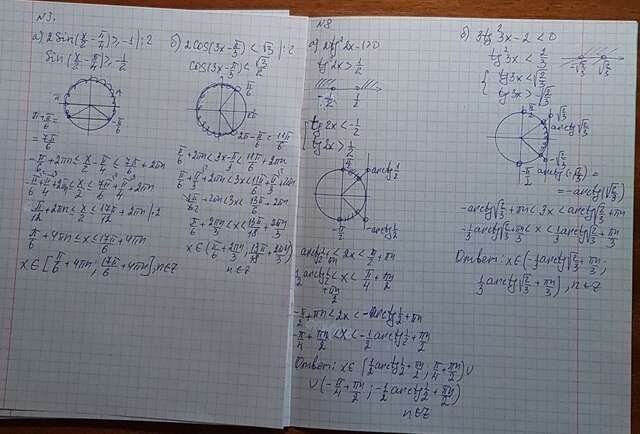 N3.
а) 2 sin(x/2 - π/4) ≥ -1 | :2
sin(x/2 - π/4) ≥ -1/2
π + π/6 =
-π/6
= 7π/6
-π/6 + 2πn ≤ x/2 - π/4 ≤ 7π/6 + 2πn
-π/6 + π/4 + 2πn ≤ x/2 ≤ 7π/6 + π/4 + 2πn
π/12 + 2πn ≤ x/2 ≤ 17π/12 + 2πn | ·2
π/6 + 4πn ≤ x ≤ 17π/6 + 4πn
x ∈ [π/6 + 4πn; 17π/6 + 4πn], n∈Z
б) 2 cos(3x - π/3) < √3 | :2
cos(3x - π/3) < √3/2
π/6
2π - π/6 = 11π/6
π/6 + 2πn < 3x - π/3 < 11π/6 + 2πn
π/6 + π/3 + 2πn < 3x < 11π/6 + π/3 + 2πn
π/6 + 2πn/3 < x < 13π/18 + 2πn/3
x ∈ (π/6 + 2πn/3; 13π/18 + 2πn/3)
n∈Z
N8
а) 4tg²2x - 1 > 0
tg²2x > 1/4
-1/2 1/2
tg2x < -1/2
tg2x > 1/2
π/2
arctg 1/2
-π/2
-arctg 1/2
arctg 1/2 + πn < 2x < π/2 + πn
1/2 arctg 1/2 + πn/2 < x < π/4 + πn/2
-π/2 + πn < 2x < -arctg 1/2 + πn
-π/4 + πn/2 < x < -1/2 arctg 1/2 + πn/2
Ответ: x ∈ (1/2 arctg 1/2 + πn/2; π/4 + πn/2) ∪
∪ (-π/4 + πn/2; -1/2 arctg 1/2 + πn/2)
n∈Z
б) 3tg²3x - 2 < 0
tg²3x < 2/3
-√2/3 √2/3
tg3x < √2/3
tg3x > -√2/3
√2/3
arctg √2/3
-√2/3
-π/2
arctg(-√2/3) =
= -arctg(√2/3)
-arctg √2/3 + πn < 3x < arctg √2/3 + πn
-1/3 arctg √2/3 + πn/3 < x < 1/3 arctg √2/3 + πn/3
Ответ: x ∈ (-1/3 arctg √2/3 + πn/3;
1/3 arctg √2/3 + πn/3), n∈Z